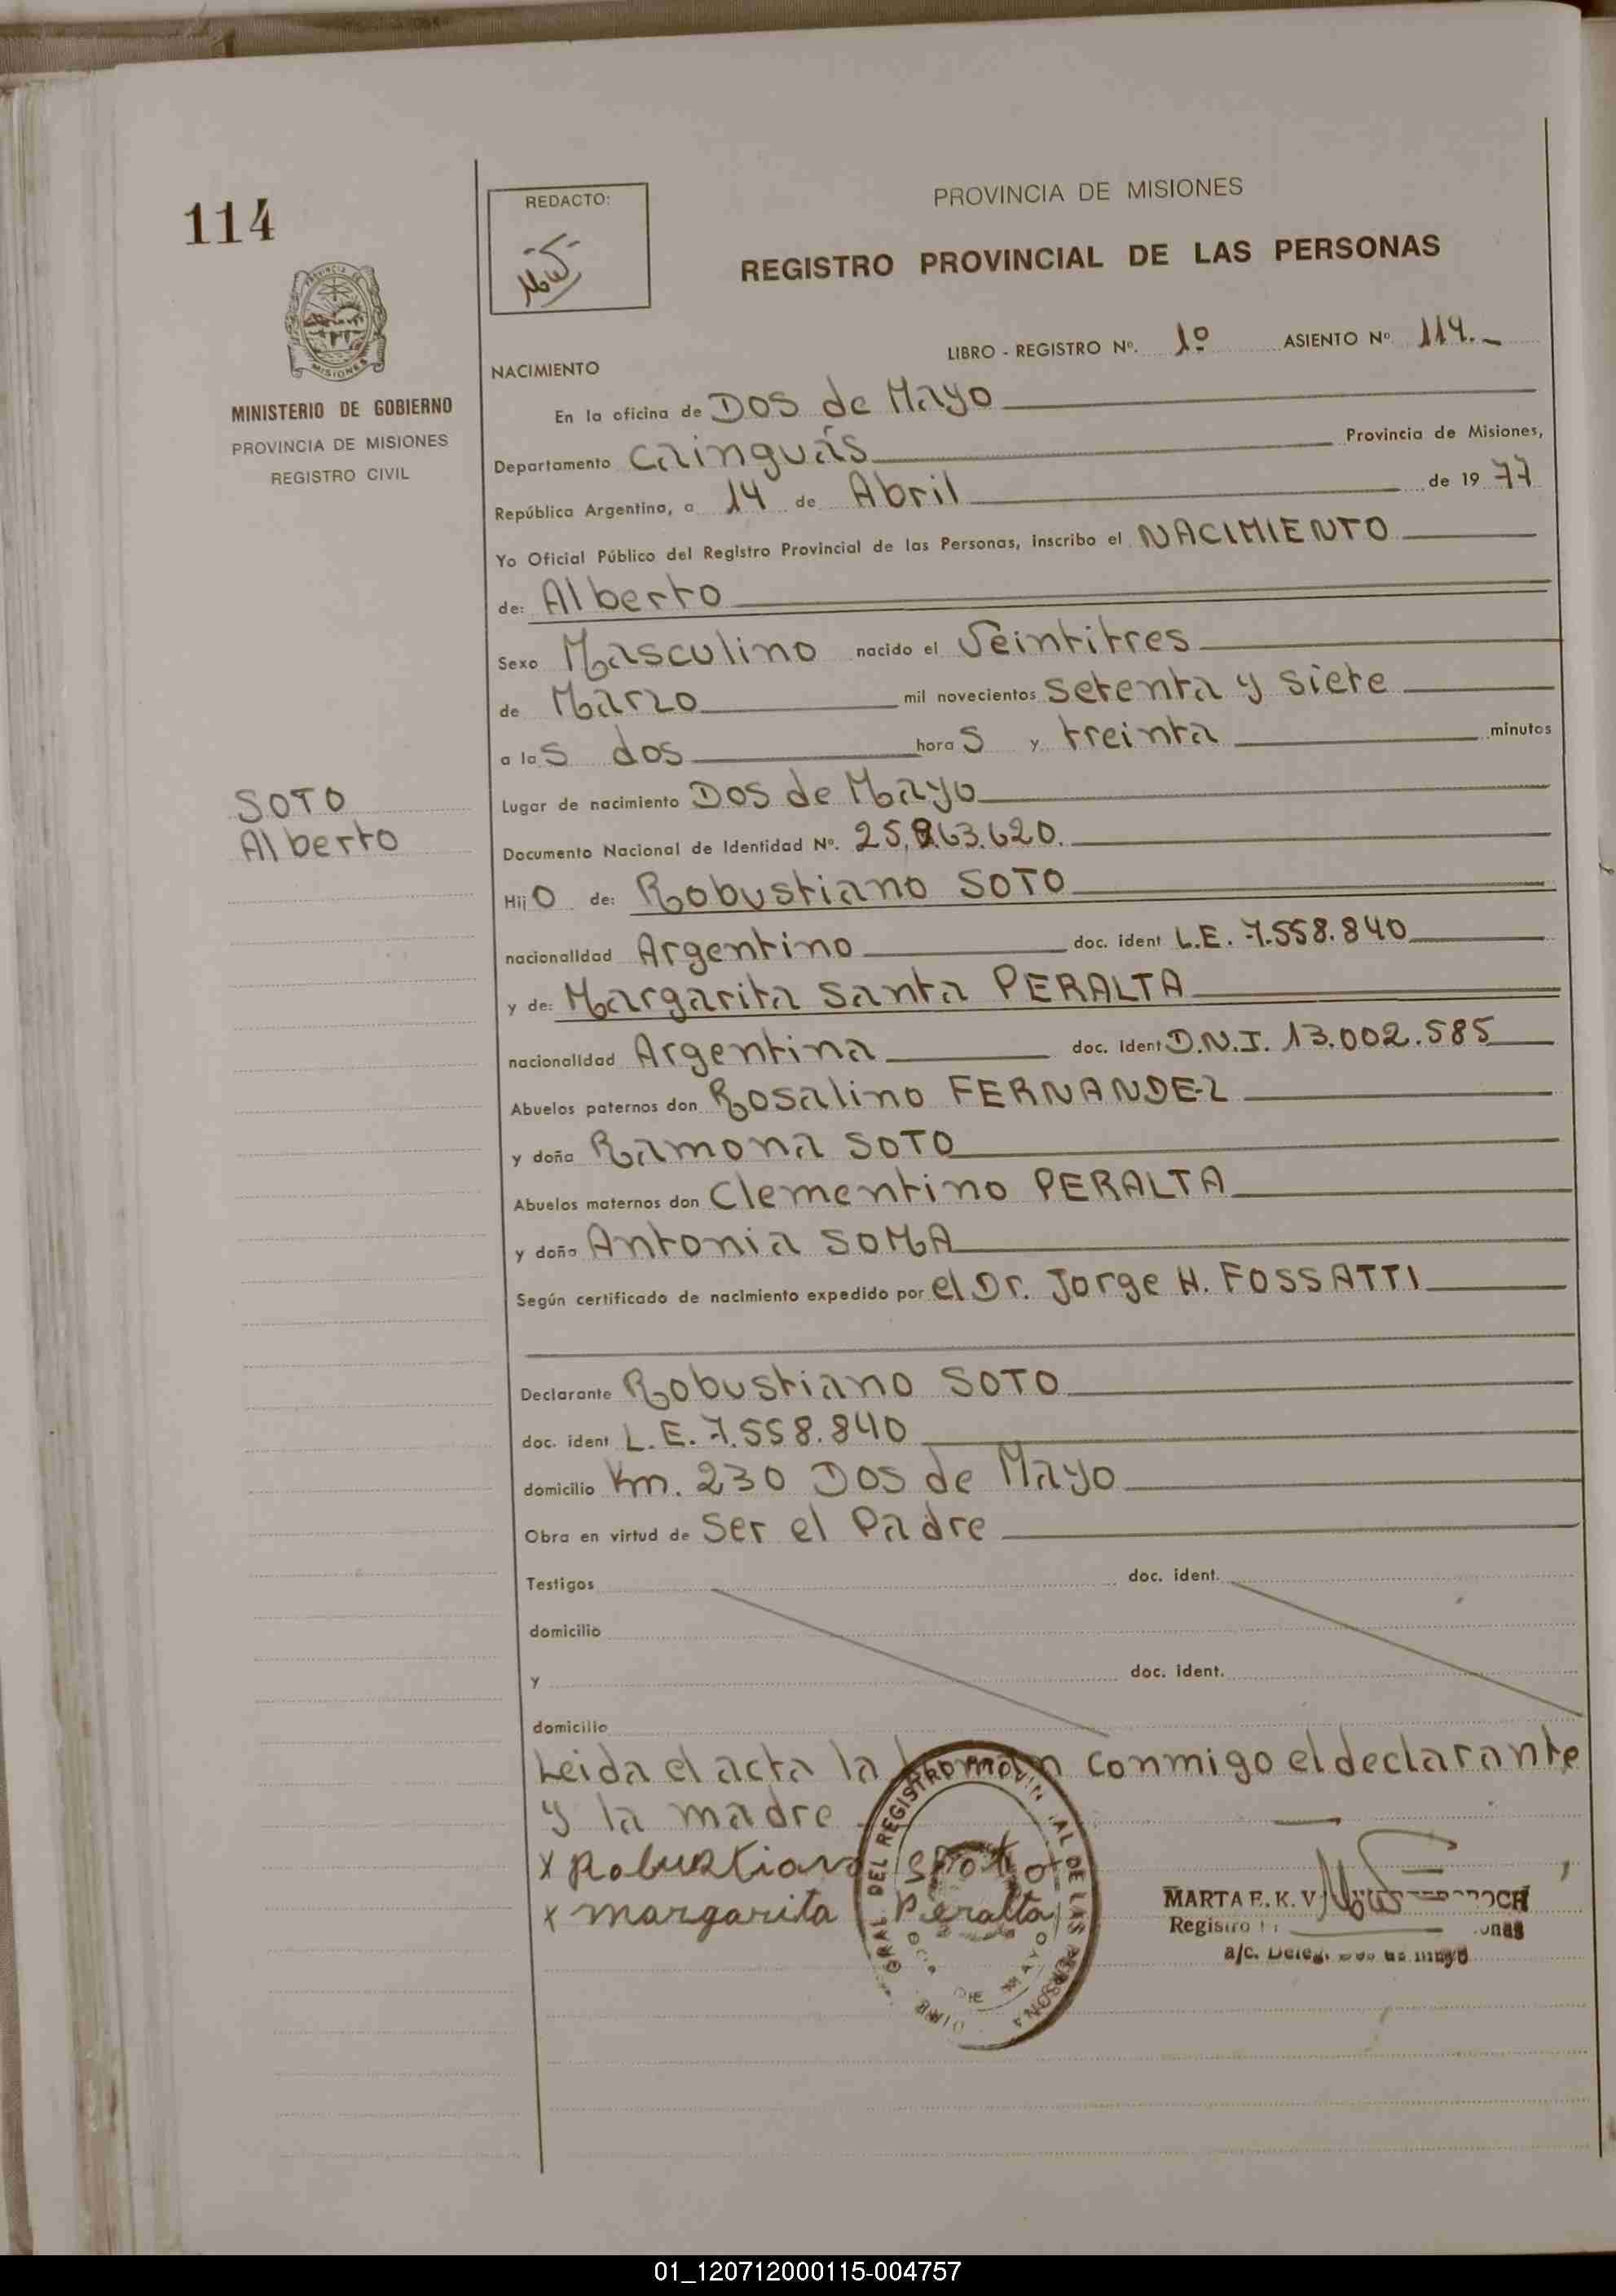 114
REDACTO:
PROVINCIA DE MISIONES
REGISTRO PROVINCIAL DE LAS PERSONAS
PROVINCIA DE
MISIONES
MINISTERIO DE GOBIERNO
PROVINCIA DE MISIONES
REGISTRO CIVIL
LIBRO - REGISTRO Nº. 1º ASIENTO Nº 114.-
NACIMIENTO
En la oficina de Dos de Mayo
Departamento Cainguás Provincia de Misiones,
República Argentina, a 14 de Abril de 1977
Yo Oficial Público del Registro Provincial de las Personas, inscribo el NACIMIENTO
de: Alberto
Sexo Masculino nacido el Veintitres
de Marzo mil novecientos setenta y siete
a las dos horas y treinta minutos
SOTO
Alberto
Lugar de nacimiento Dos de Mayo
Documento Nacional de Identidad Nº. 25.863.620.
Hijo de: Robustiano SOTO
nacionalidad Argentino doc. ident L.E. 7.558.840
y de: Margarita Santa PERALTA
nacionalidad Argentina doc. ident D.N.I. 13.002.585
Abuelos paternos don Rosalino FERNANDEZ
y doña Ramona SOTO
Abuelos maternos don Clementino PERALTA
y doña Antonia SOMA
Según certificado de nacimiento expedido por el Dr. Jorge H. FOSSATTI
Declarante Robustiano SOTO
doc. ident L.E. 7.558.840
domicilio Km. 230 Dos de Mayo
Obra en virtud de Ser el Padre
Testigos doc. ident.
domicilio
y doc. ident.
domicilio
Leida el acta la firman conmigo el declarante
y la madre
x Robustiano Soto
x margarita Peralta
GRAL DEL REGISTRO PROVINCIAL DE LAS PERSONAS
DE MAYO
MARTA E. K. V
Registro
a/c. Deleg. Dos de Mayo
01_120712000115-004757